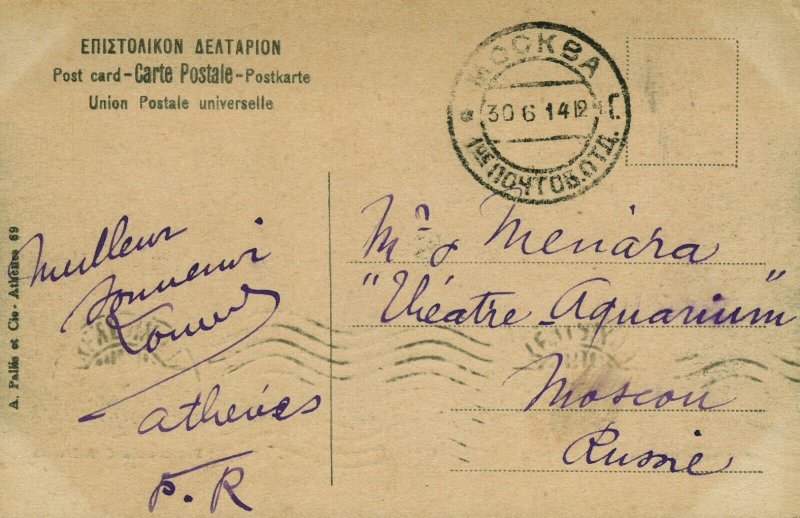 ΕΠΙΣΤΟΛΙΚΟΝ ΔΕΛΤΑΡΙΟΝ
Post card - Carte Postale - Postkarte
Union Postale universelle
МОСКВА
30 6 14 12
Г.
1ое ПОЧТОВ. ОТД.
A. Pallis et Cie - Athènes 69
Meilleur
souvenir
Athènes
P. R
Mr & Menára
"Théatre - Aquarium"
Moscou
Russie